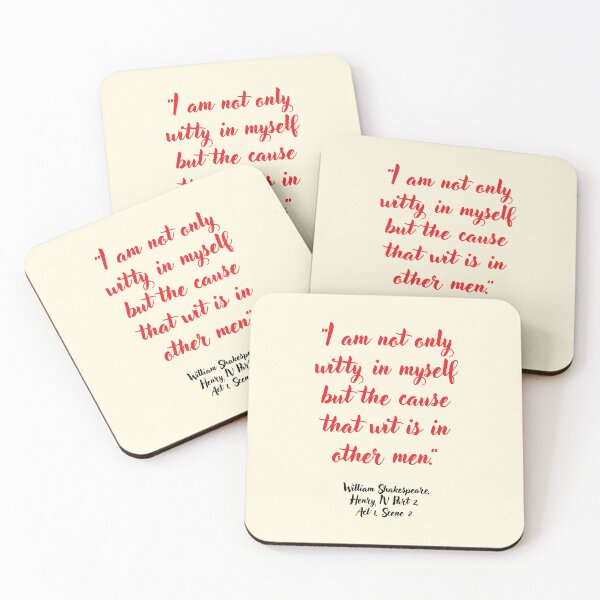 "I am not only
witty in myself
but the cause
is in
"I am not only
witty in myself
but the cause
that wit is in
other men."
"I am not only
witty in myself
but the cause
that wit is in
other men."
William
Henry, IV Part
Act 1, Scene
"I am not only
witty in myself
but the cause
that wit is in
other men."
William Shakespeare,
Henry, IV Part 2,
Act 1, Scene 2